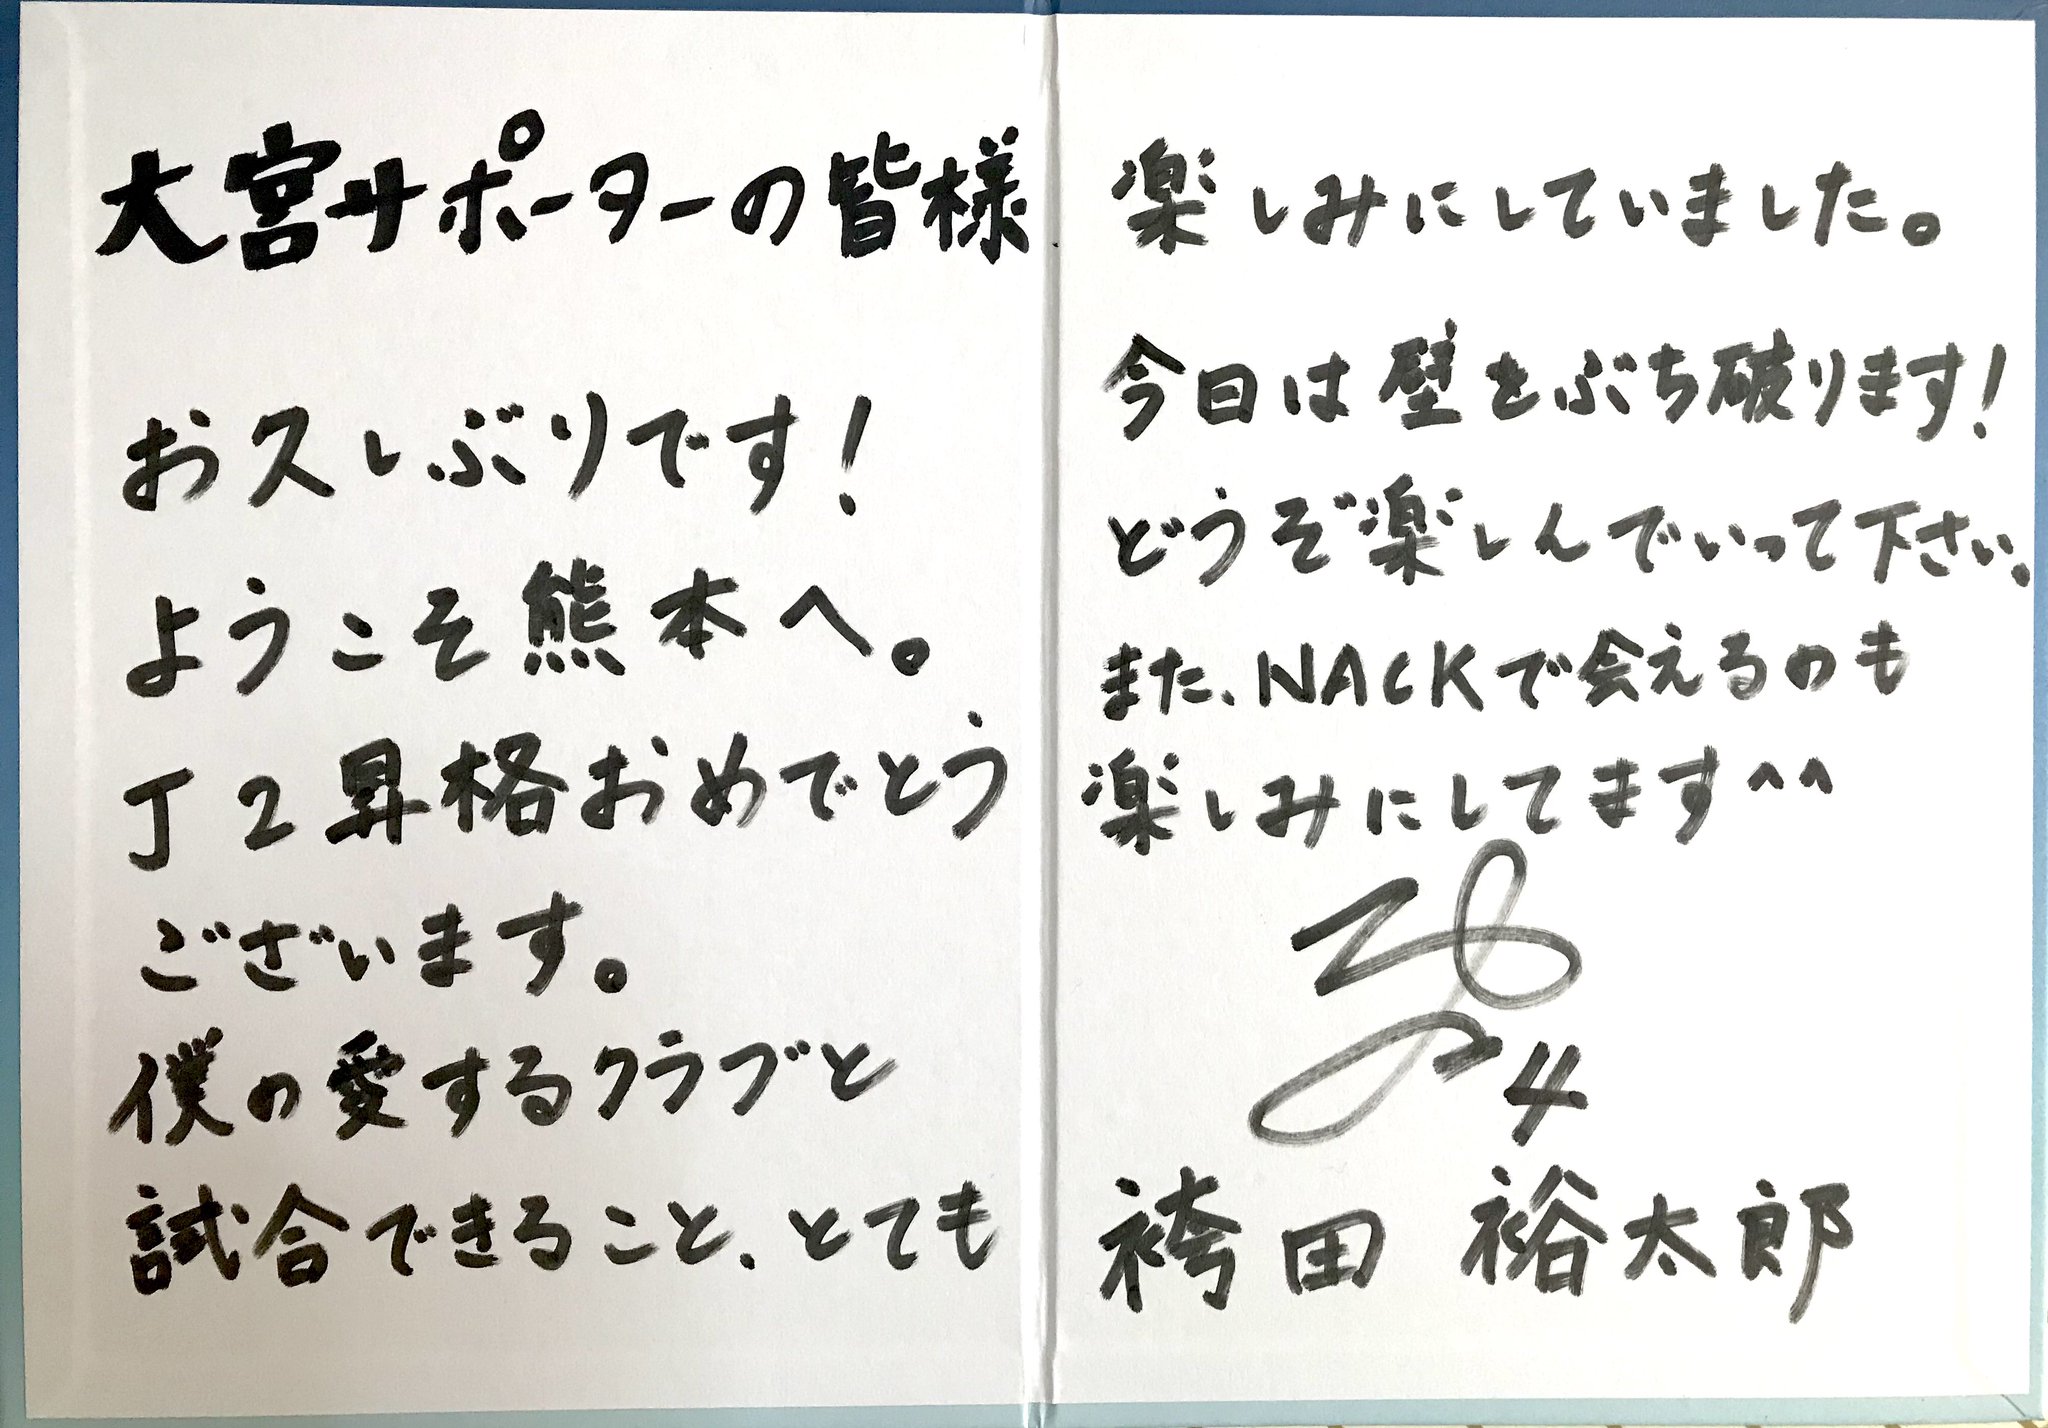 大宮サポーターの皆様
お久しぶりです!
ようこそ熊本へ。
J2昇格おめでとう
ございます。
僕の愛するクラブと
試合できること、とても
楽しみにしていました。
今日は壁をぶち破ります!
どうぞ楽しんでいって下さい。
また、NACKで会えるのも
楽しみにしてます^^
4
袴田 裕太郎